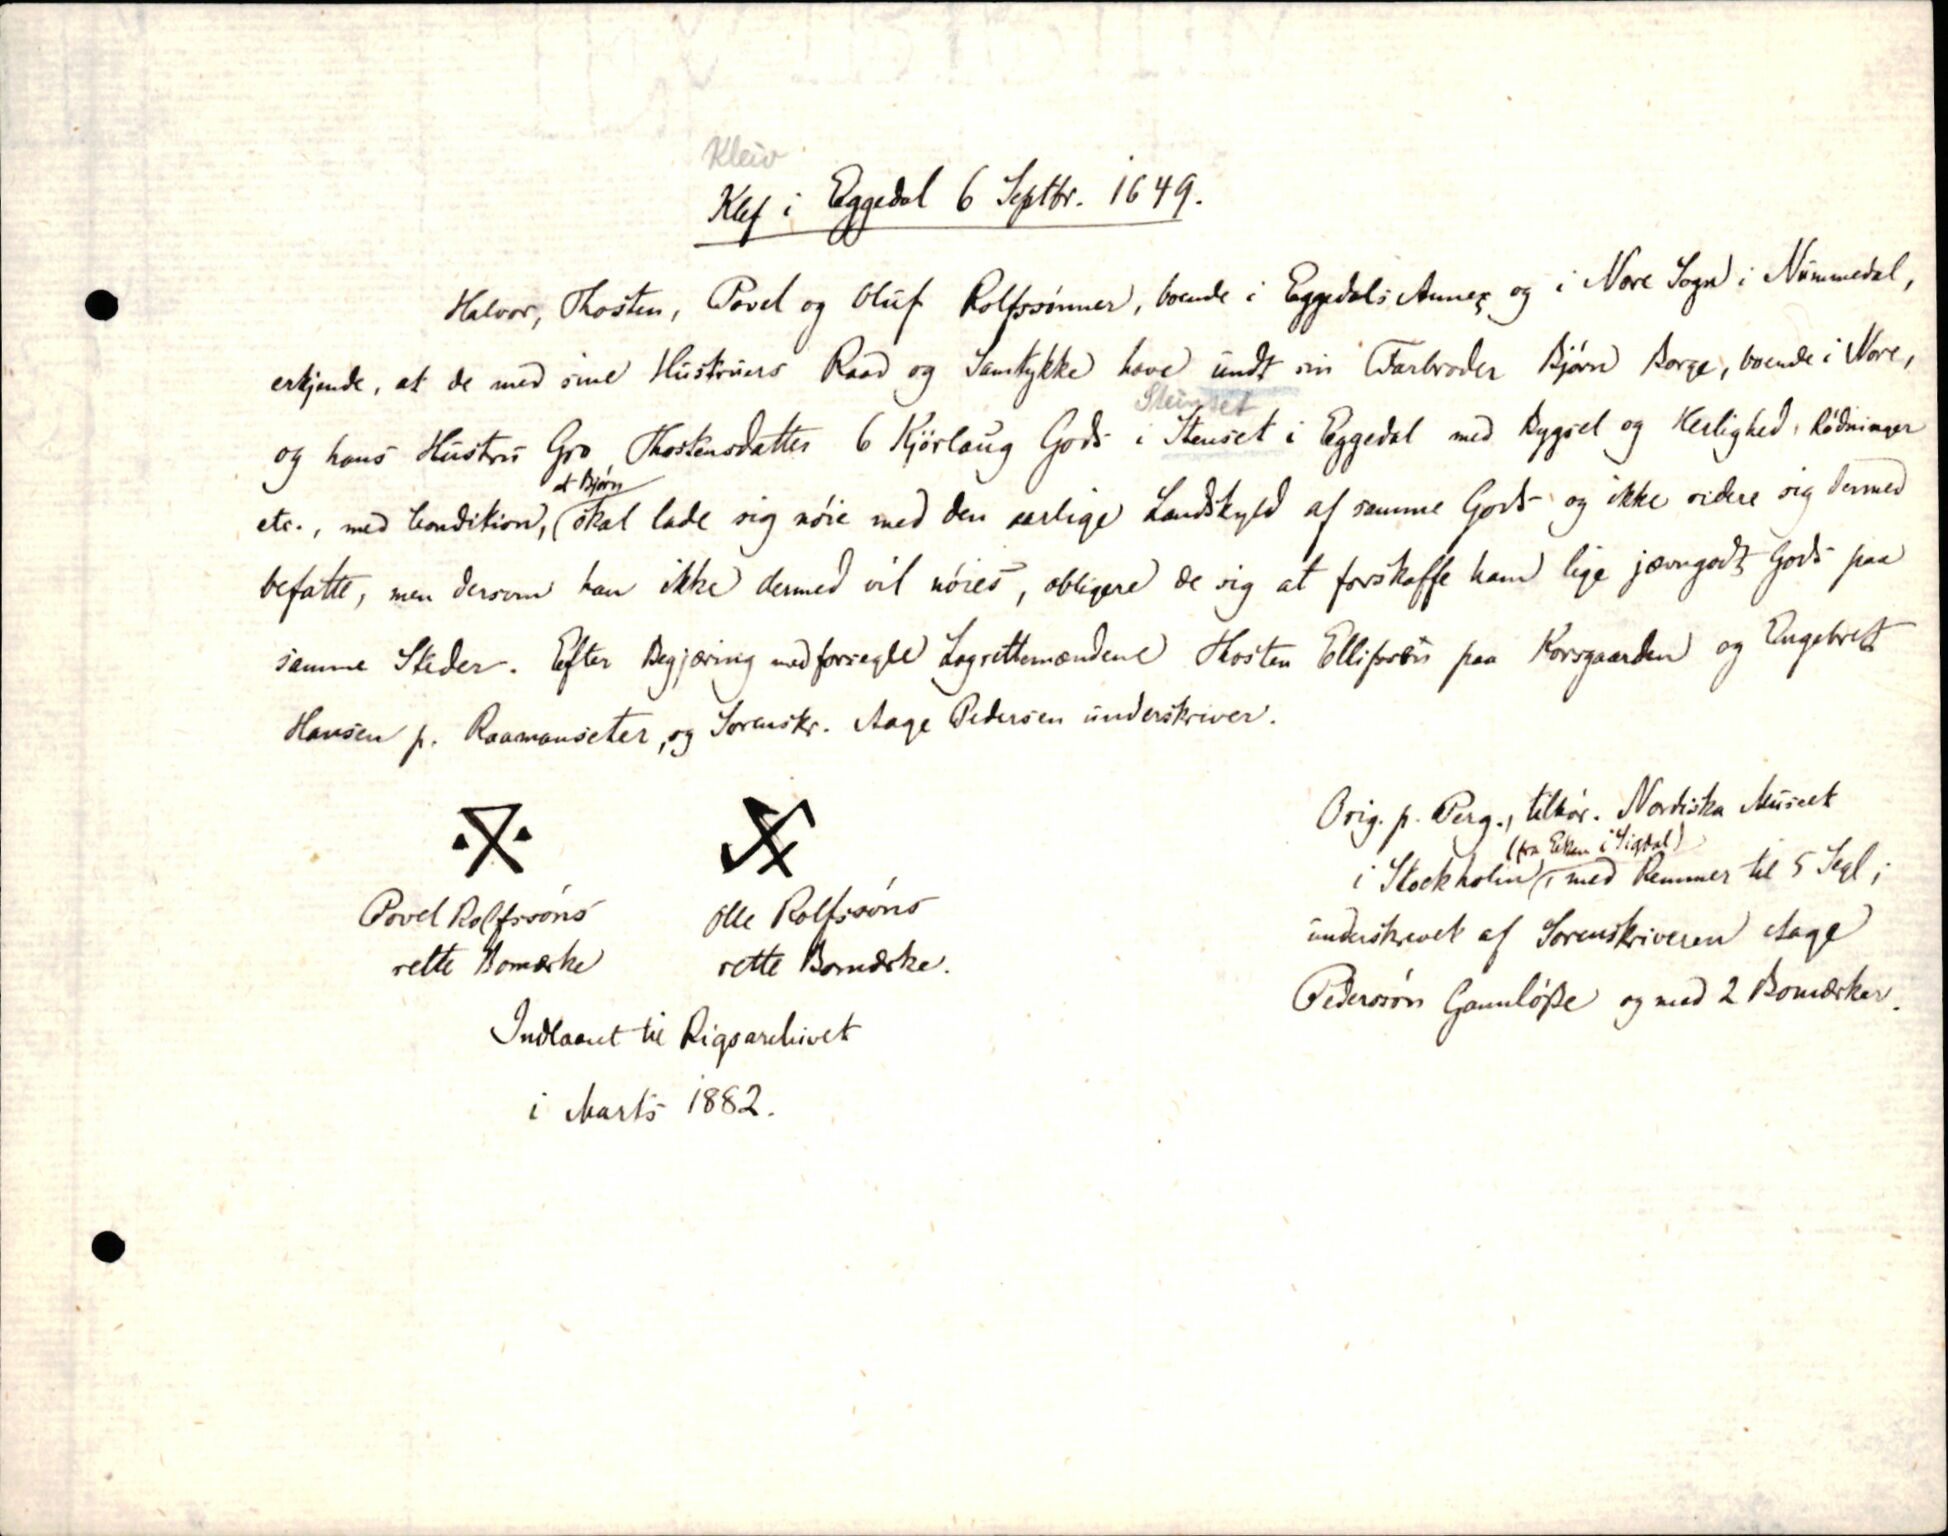 Kleiv
Klef i Eggedal 6 Septbr. 1649.
Halvor, Thosten, Povel og Oluf Rolfssønner, boende i Eggedals Annex og i Nore Sogn i Nummedal,
erkjende, at de med sine Hustruers Raad og Samtykke have undt sin Farbroder Bjørn Borge, boende i Nore,
Steinset
og hans Hustru Gro Thostensdatter 6 Kjörlaug Gods i Stenset i Eggedal med Bygsel og Herlighed, Rödninger
at Bjørn
etc., med Condition, skal lade sig nöie med den aarlige Landskyld af samme Gods og ikke videre sig dermed
befatte, men dersom han ikke dermed vil nöies, obligere de sig at forskaffe ham lige jævngodt Gods paa
samme Steder. Efter Begjæring medforsegle Lagrettemændene Thosten Ellifssøn paa Korsgaarden og Engebret
Hansen p. Raamanseter, og Sorenskr. Aage Pedersen underskriver.
Povel Rolfssöns
rette Bomærke
Olle Rolfssöns
rette Bomærke.
Indlaant til Rigsarchivet
i Marts 1882.
Orig. p. Perg., tilhör. Nordiska Museet
(fra Eken i Sigdal)
i Stockholm, med Remmer til 5 Segl;
underskrevet af Sorenskriveren Aage
Pederssön Gamlöße og med 2 Bomærker.